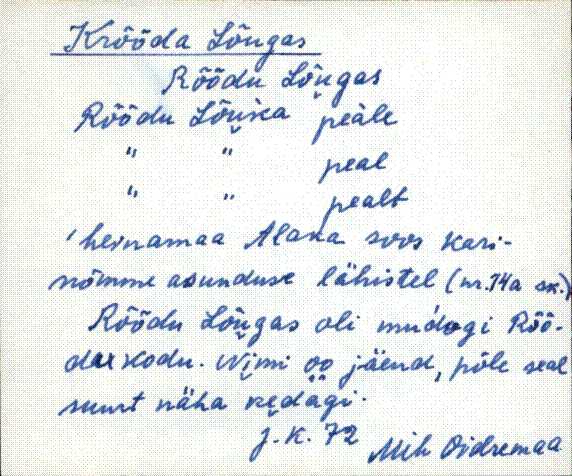 Krõõda Lõugas
Rõõdu Lõu̬gas
Rõõdu Lõu̬ka peàle
" " peal
" " pealt
'heinamaa Alaka soos Kari-
nõmme asunduse lähistel (nr. 74a sk.)
Rõõdu Lõu̬gas oli mud́ogi Rõõ-
da kodu. Ni̬mi oo jäend, põle seal
suurt näha ke̬dägi.
J. K. 72 Mih Oidremaa